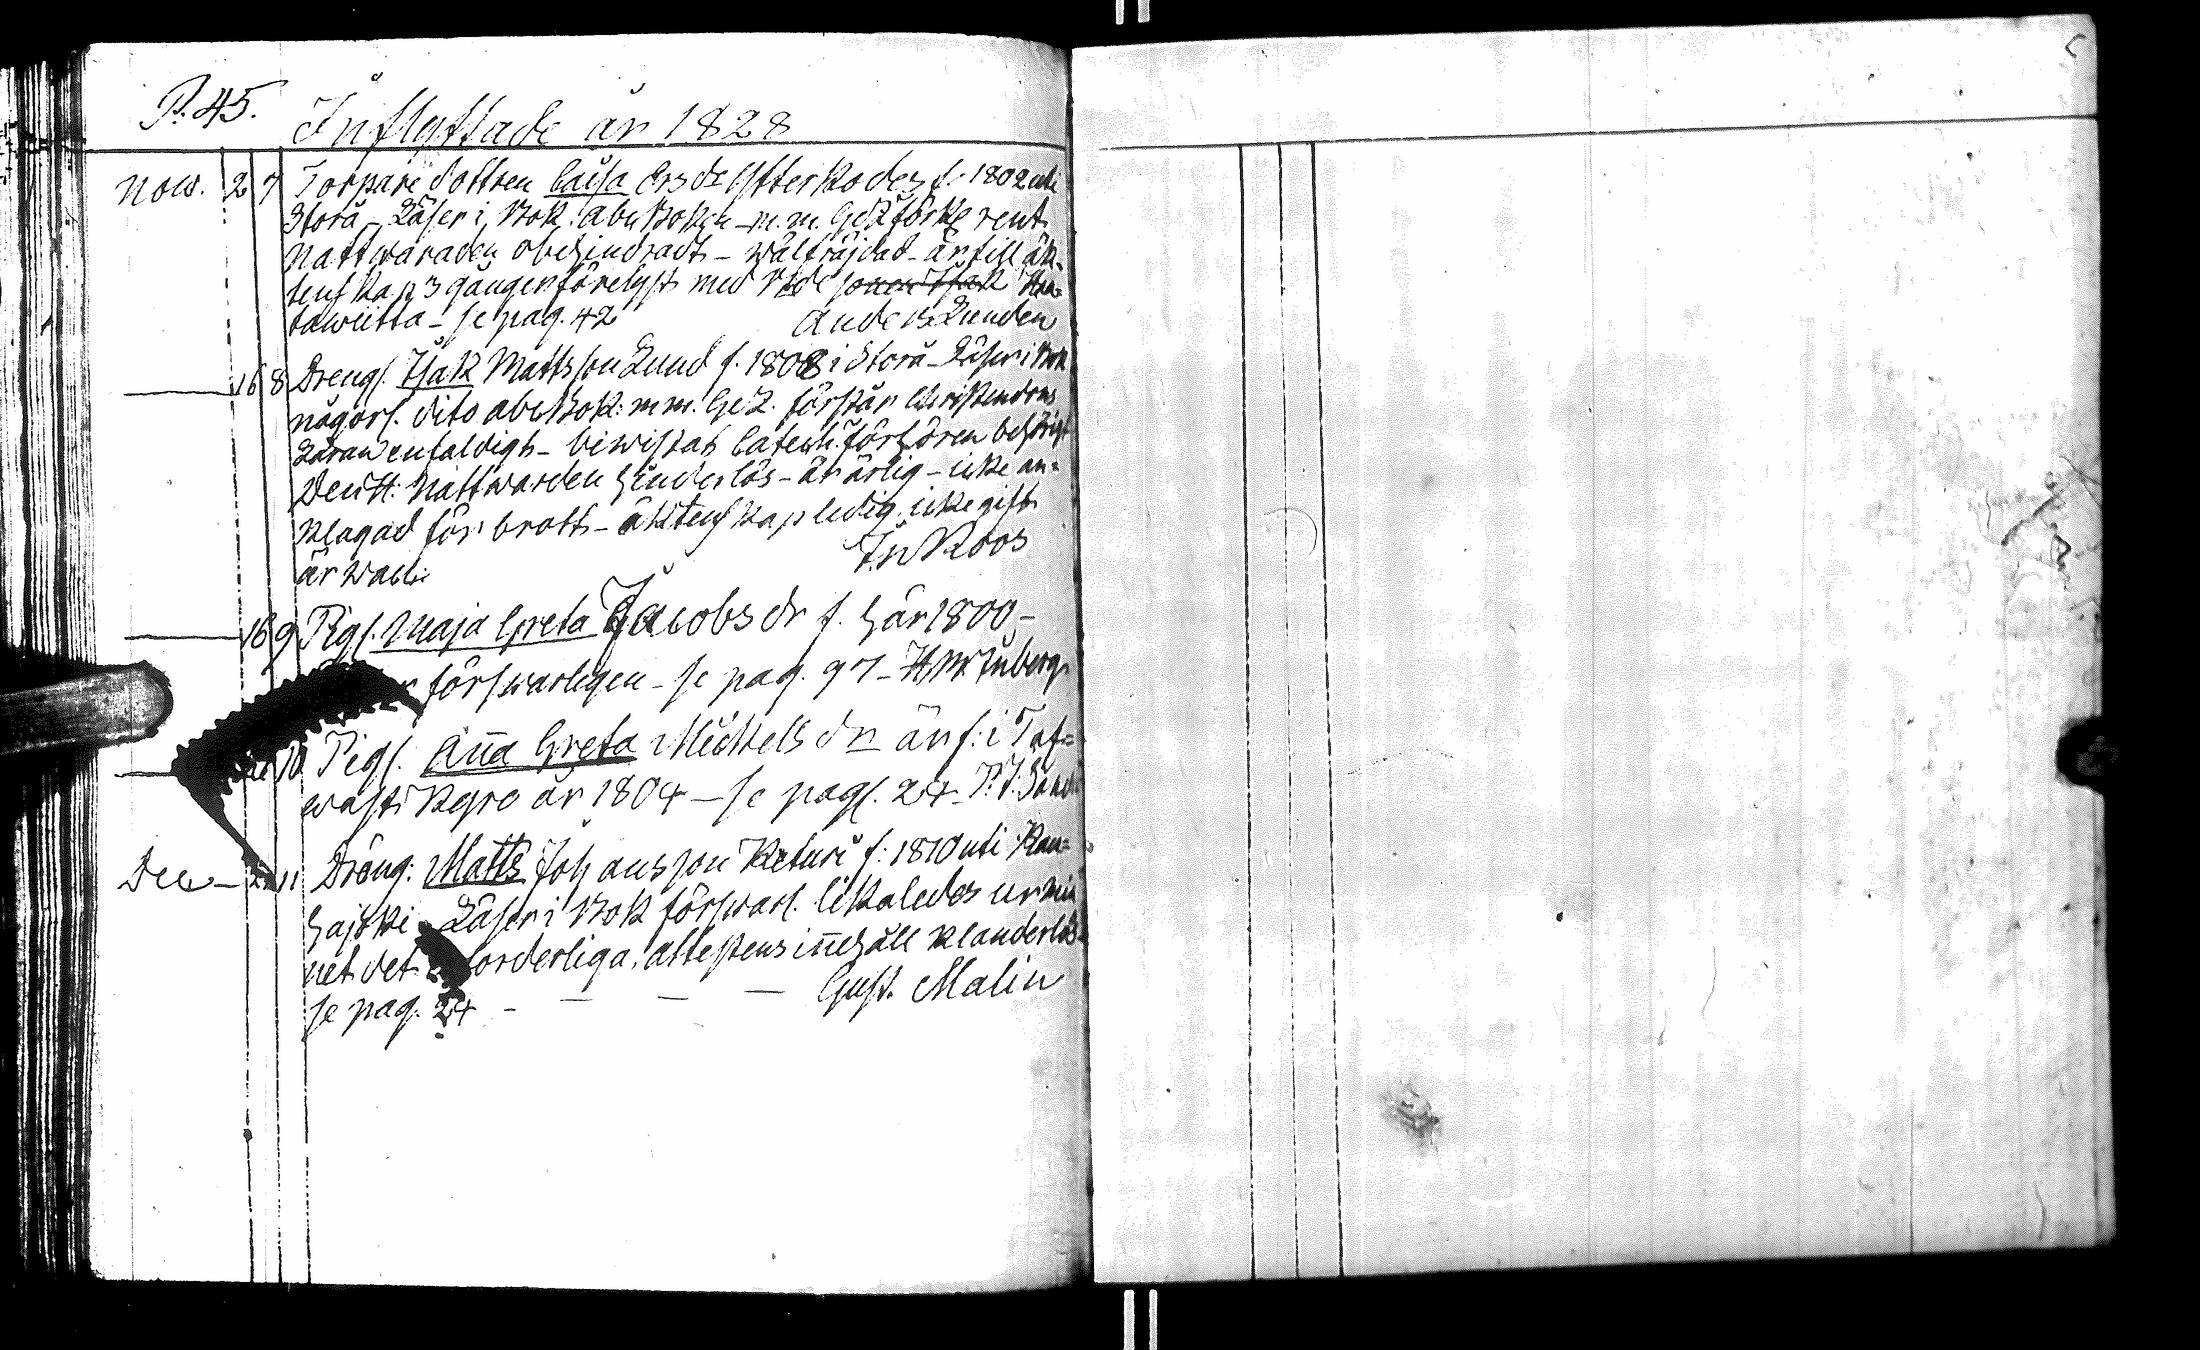 P. 45.
Inflyttade år 1828
Now. 2 7 Torpare dottren Caisa Ersdr f. 1802 uti
Storå – Läser i Bok. abc Boken – m.m. rent
Nattwarden obehindradt – wälfräjdad – är till äk-
tenskap 3 gånger förelyst med
– se pag. 42 Anders Lunden
16 8 Drengs. Isak Mattsson Lund f. 1808 i Storå – Läser i Bok
någorl. dito abc Bok: m.m. förstår Christendoms
Läran enfaldigt – biwistat Catech. förhören behörigt
Nattwarden hinderlös – är ärlig – icke an-
klagad för brott – äktenskap ledig. icke gift
är J. N. Roos
16 9 Pigs. Maja Greta Jacobs dr f. här 1800 –
förswarligen – se pag. 97 –
10 Pigs. Anna Greta Mickels dr är f. i Taf=
wasti Kyro år 1804 – se pag. 24
Dec – 11 Dräng: Matts Johansson Keturi f: 1810 uti Kan=
hajoki Läser i Bok förswarl. likaledes ur min
net det erforderliga. attestens innehåll klanderlös
se pag. 24 – – – – Gust. Malin